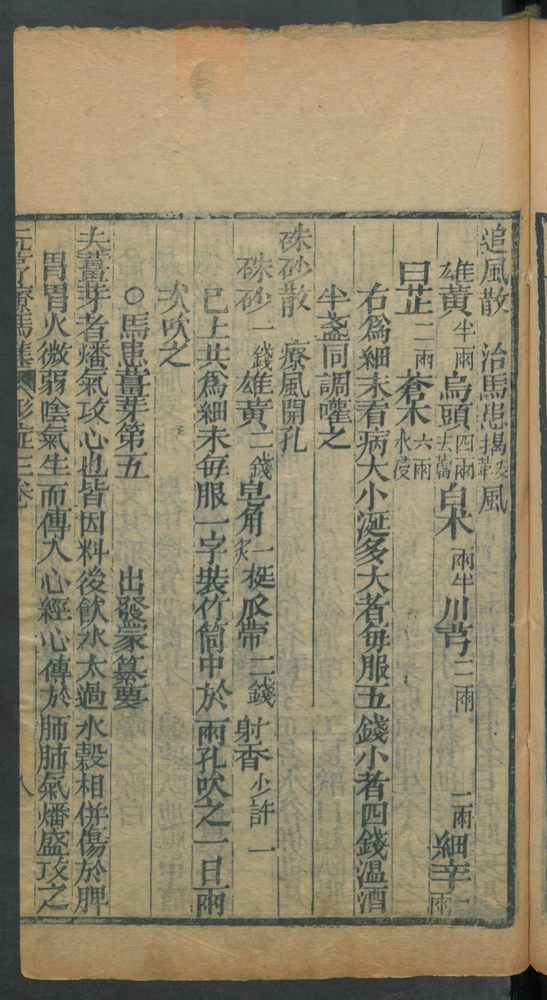 追風散　治馬患揭鞍風
雄黃半兩烏頭四兩去臍白朮兩半川芎二兩　一兩細辛一兩
白芷二兩蒼朮六兩水浸
右爲細末看病大小涎多大者每服五錢小者四錢溫酒
半盞同調嚾之
硃砂散　療風開孔
硃砂一錢雄黃二錢皂角一挺炙瓜蒂二錢　射香少許一
已上共爲細末每服一字裝竹筒中於兩孔吹之一日兩
次吹之
○馬患薑芽第五　　出發蒙纂要
夫薑芽者燔氣攻心也皆因料後飲水太過水穀相併傷於脾
胃胃火微弱陰氣生而傳入心經心傳於肺肺氣燔盛攻之
療馬集　三卷　八